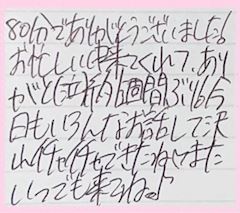 80分でありがとうございました!
お忙しい中来てくれて、あり
がと 週間ぶり 今
日もいろんなお話して沢
山イチャイチャできたね またいつでも来てね♪